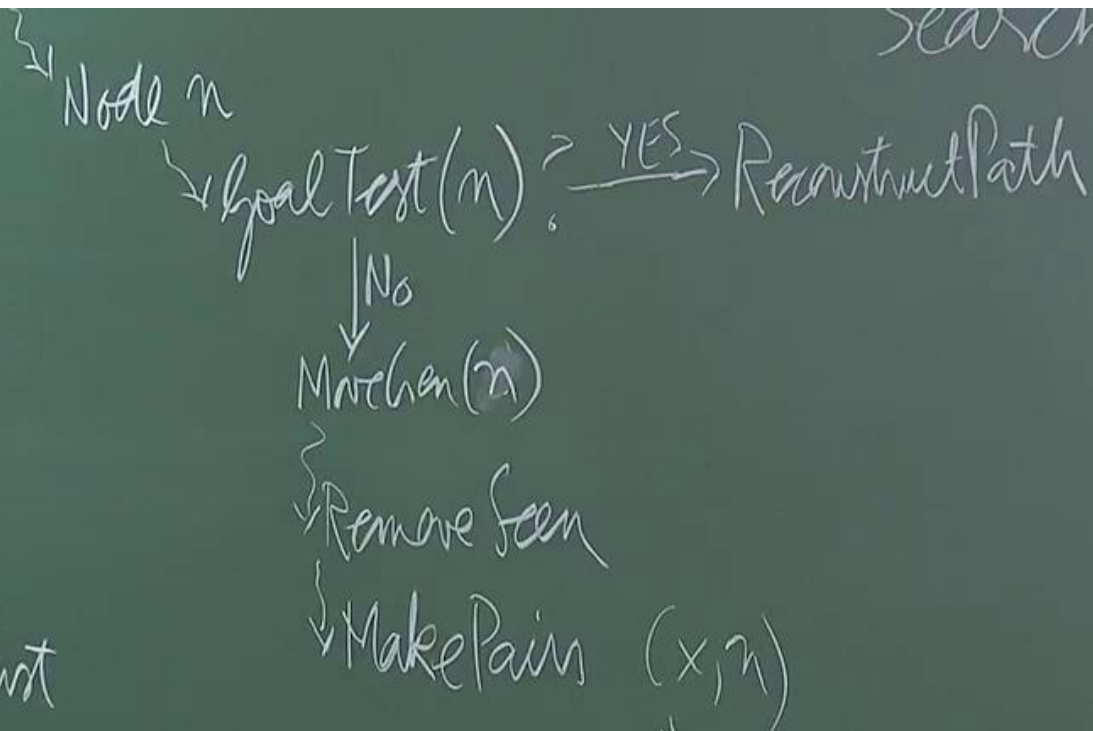 Search
Node n
GoalTest(n)? YES ReconstructPath
No
MoveGen(n)
Remove Seen
MakePairs (x,n)